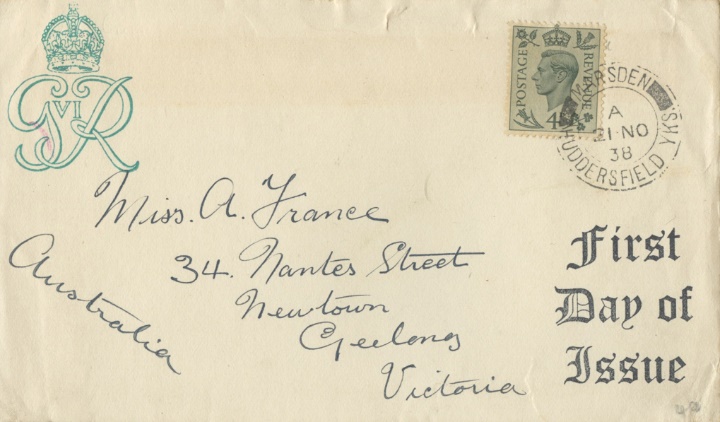 GRVI
POSTAGE
REVENUE
4D
MARSDEN
A
21·NO
38
HUDDERSFIELD YKS.
Miss. A. France
34. Nantes Street
Newtown
Geelong
Victoria
Australia
First
Day of
Issue